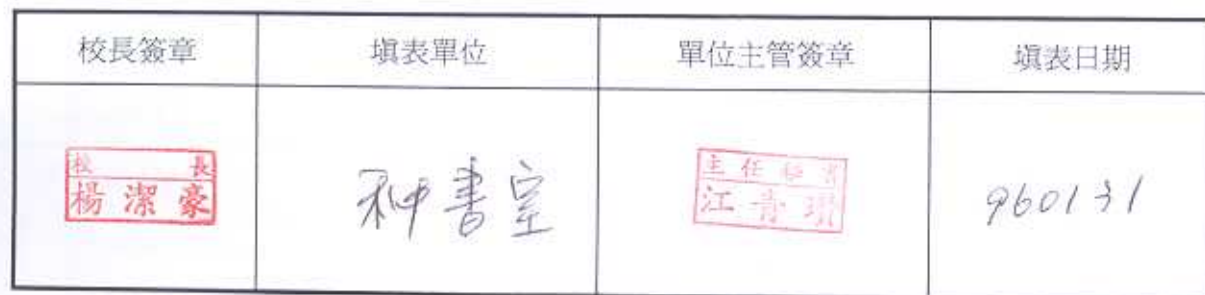 校長簽章 填表單位 單位主管簽章 填表日期
校 長
楊潔豪
秘書室
主任秘書
江青
960131